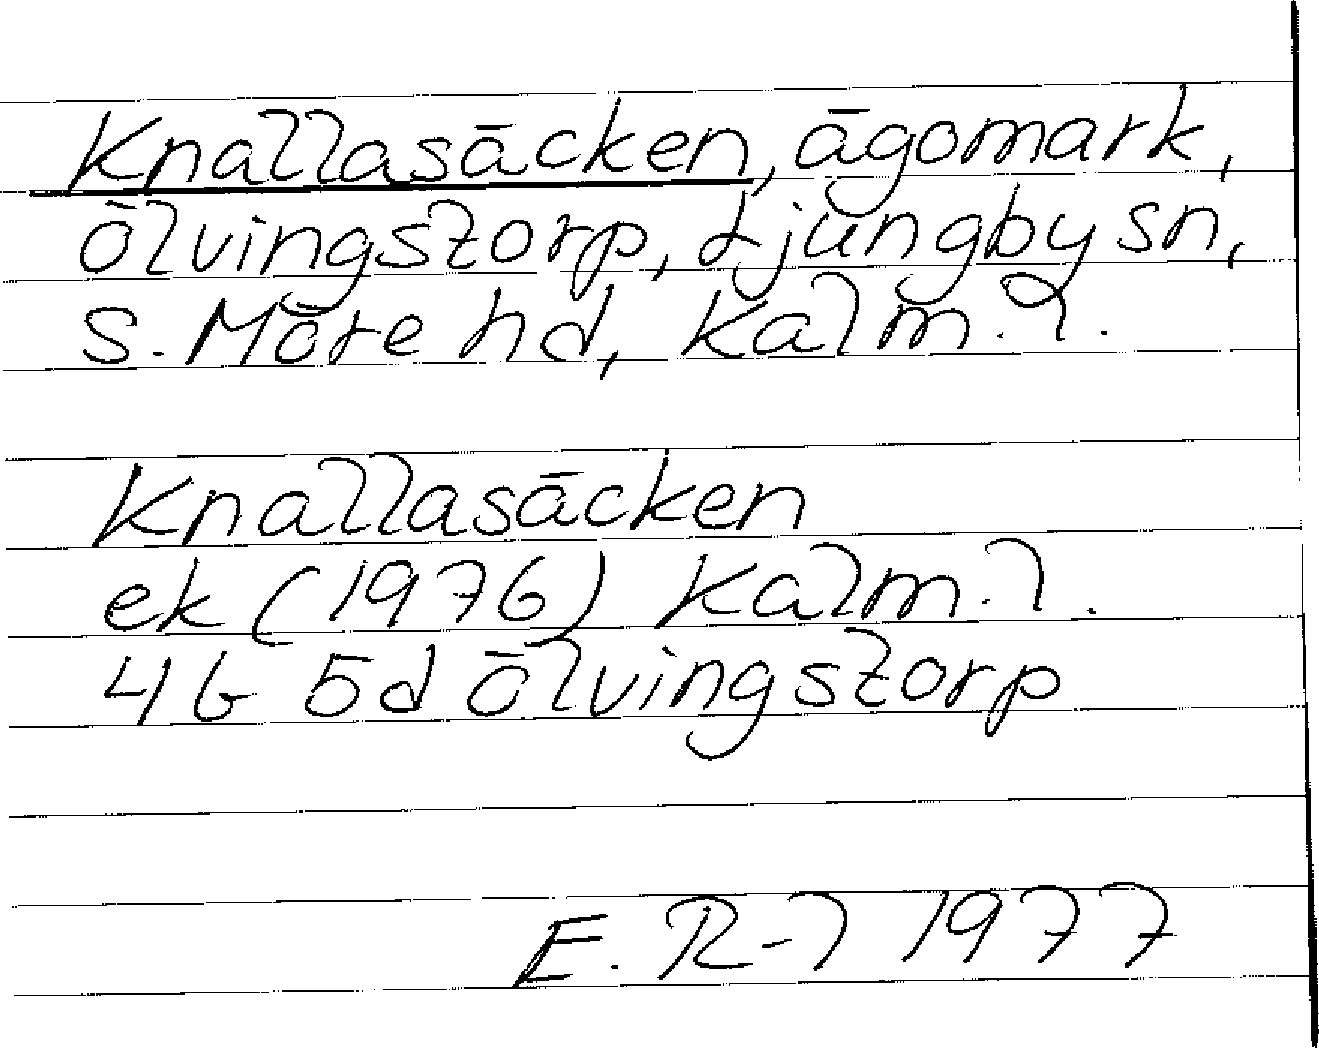 Knallasäcken, ägomark,
Ölvingstorp, Ljungby sn,
S. Möre hd, Kalm. l.
Knallasäcken
ek (1976) Kalm. l.
4G 5d Ölvingstorp
E. R-l 1977